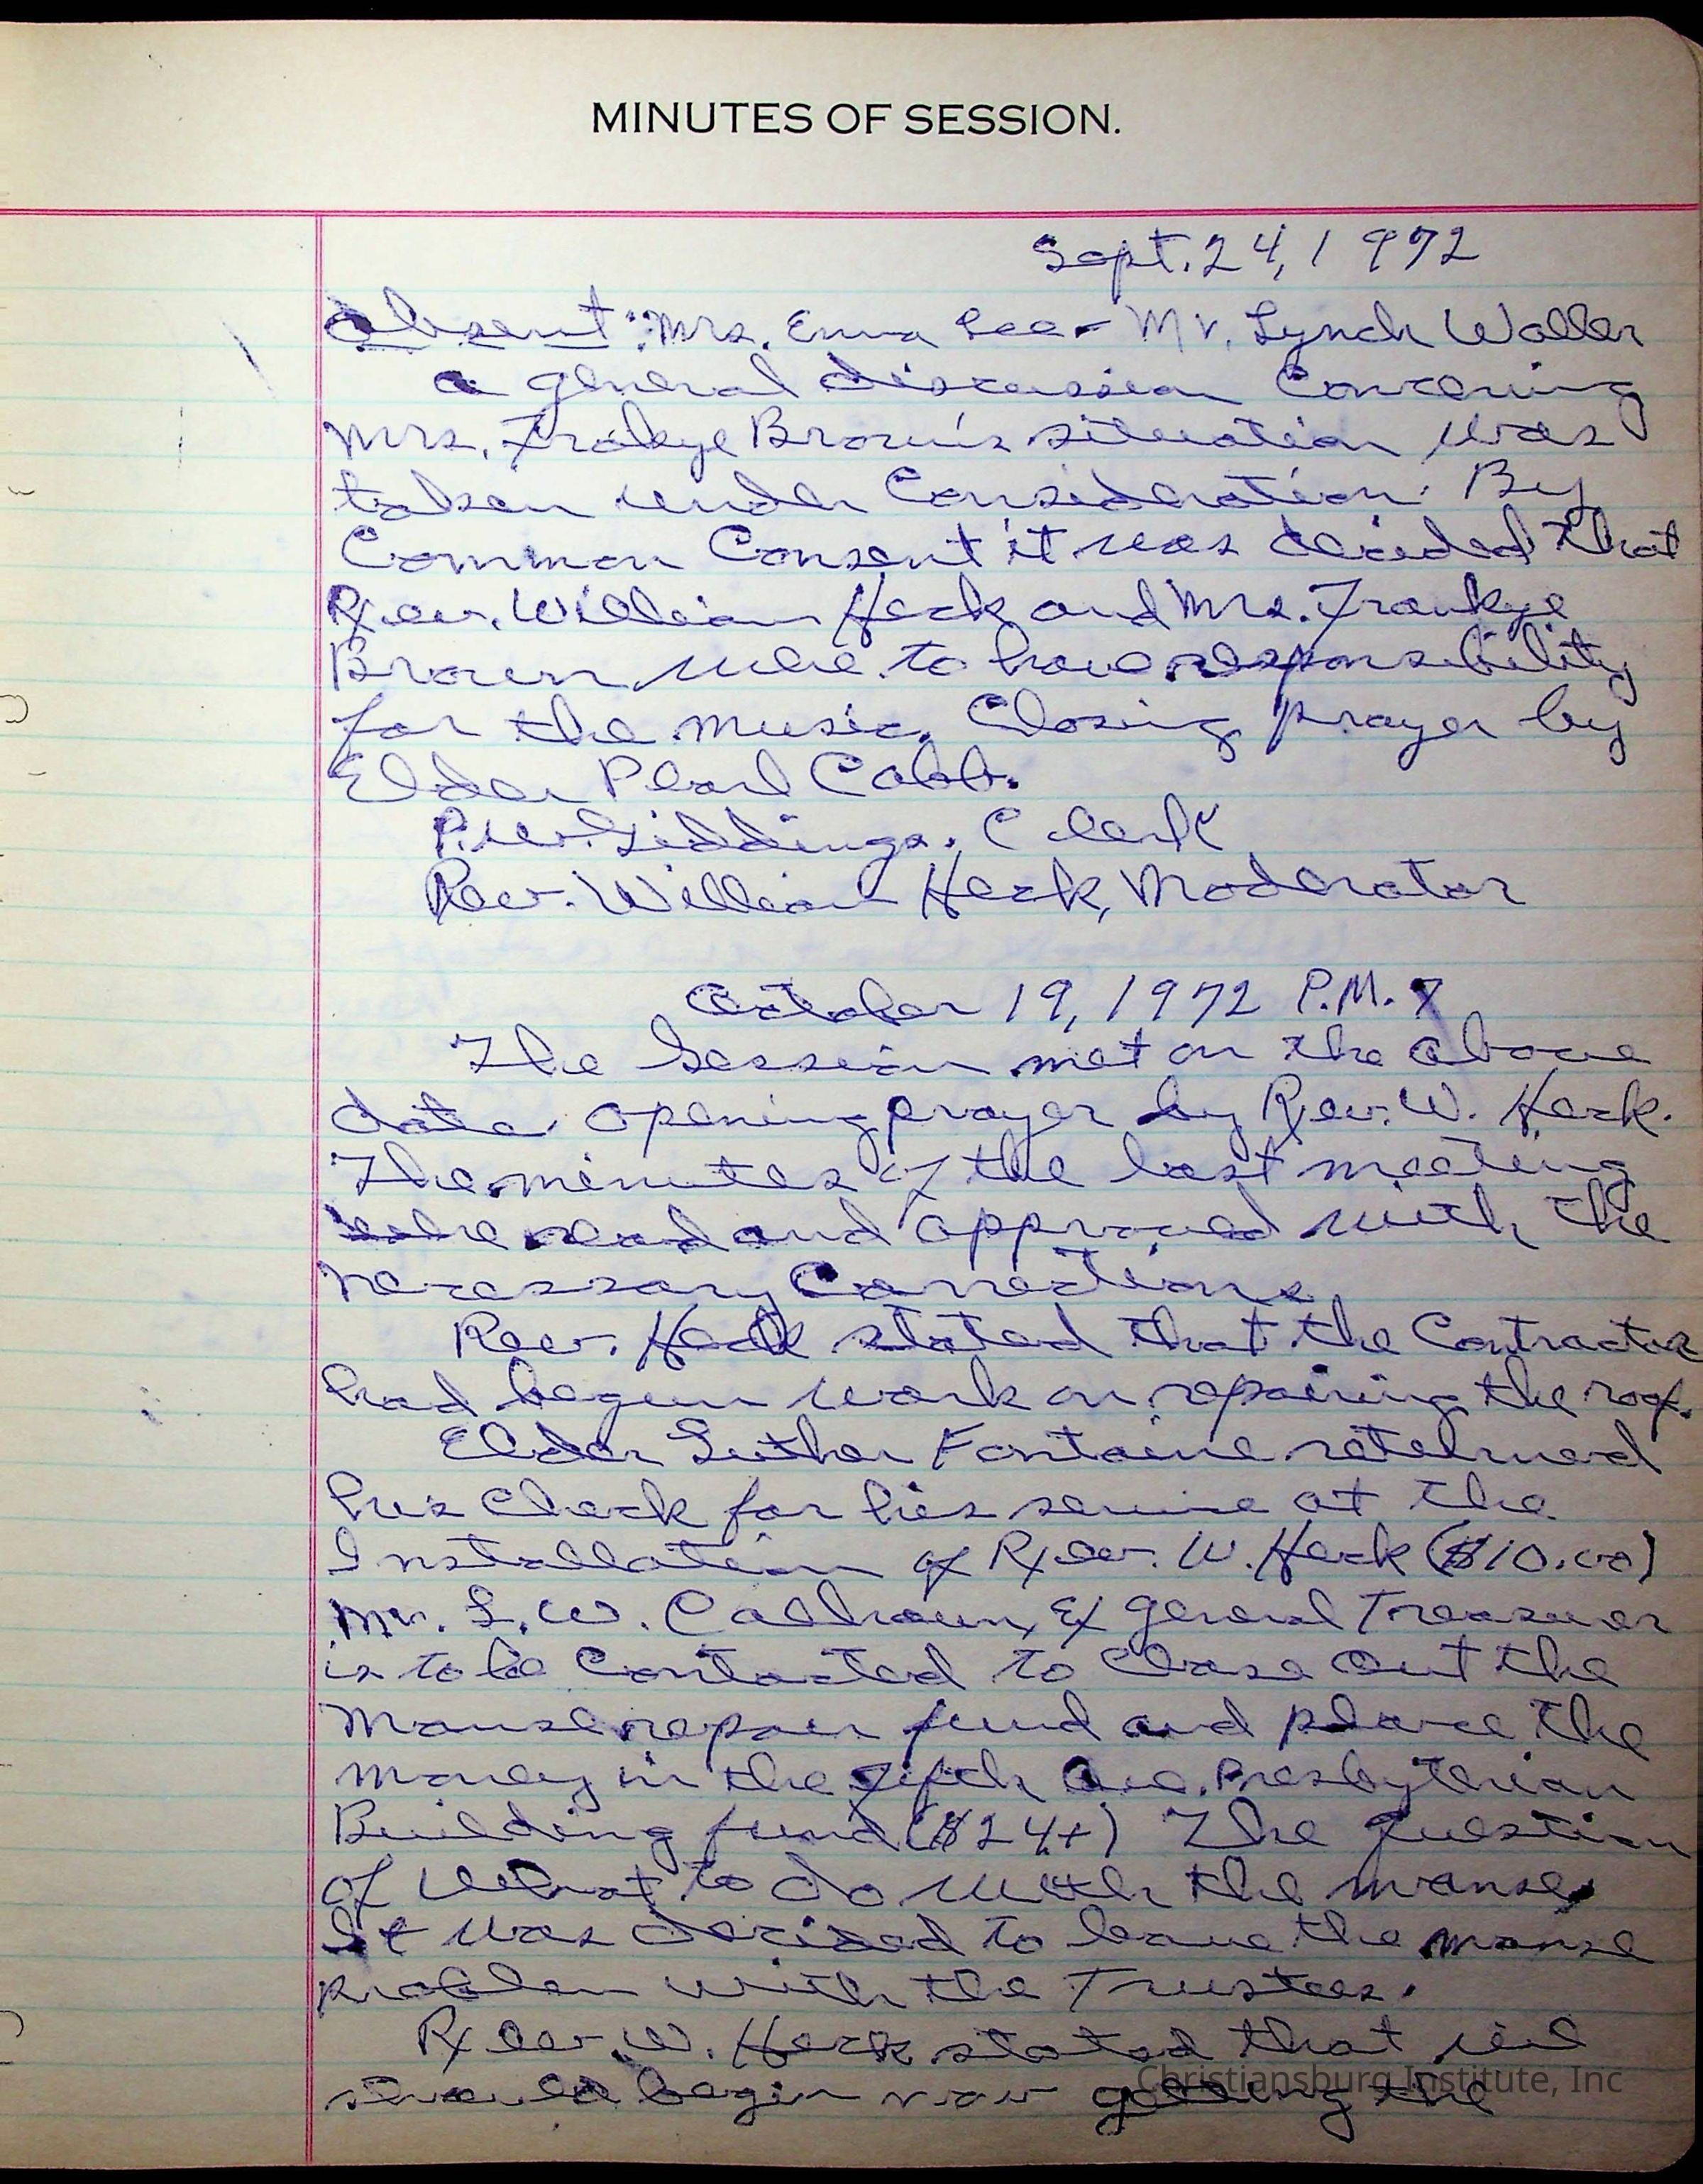 MINUTES OF SESSION.
Sept. 24, 1972
Absent: Mrs. Emma Lee - Mr. Lynch Waller
a general discussion Concering
Mrs. Brown's situation was
taken under Consideration. By
Common Consent it was decided that
Rev. William Heck and Mrs. Frankye
Brown were to have responsibility
for the music. Closing prayer by
Elder Pearl Cobb.
P.W. Giddings, Clerk
Rev. William Heck, Moderator
October 19, 1972 P.M. 7
The Session met on the above
date. Opening prayer by Rev. W. Heck.
The minutes of the last meeting
were read and approved with the
necessary Corrections.
Rev. Heck stated that the Contractor
had begun work on repairing the roof.
Elder Luther Fontaine returned
his check for his service at the
Installation of Rev. W. Heck ($10.00)
Mr. L. W. Calhoun, Ex general Treasurer
is to be Contacted to Close out the
Manse repair fund and place the
money in the Fifth Ave. Presbyterian
Building fund ($24+) The question
of What to do with the manse,
It was decided to leave the manse
problem with the Trustees.
Rev. W. Heck stated that we
should begin now getting the
Christiansburg Institute, Inc